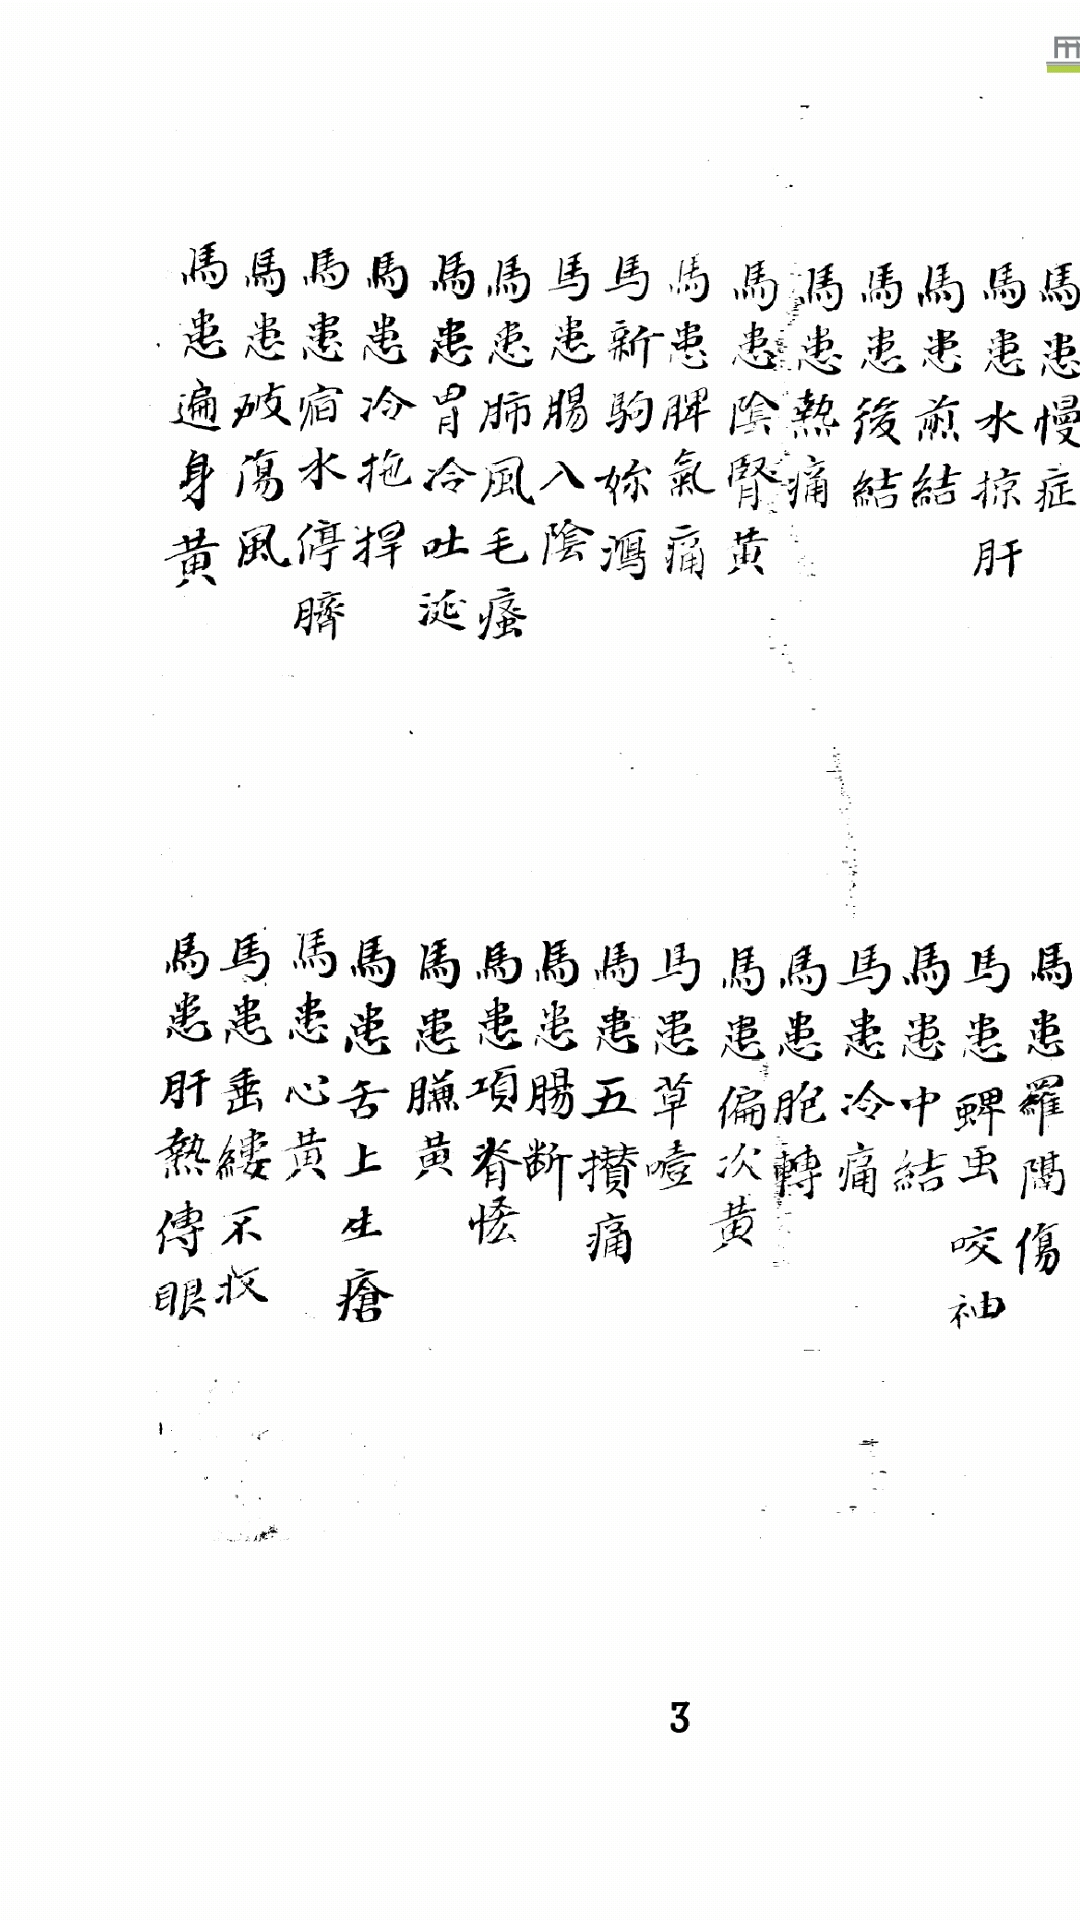 馬患慢症
馬患水掠肝
馬患煎結
馬患後結
馬患熱痛
馬患陰腎黃
馬患脾氣痛
馬新駒妳瀉
馬患腸入陰
馬患肺風毛瘙
馬患胃冷吐涎
馬患冷拖捍
馬患宿水停臍
馬患破傷風
馬患遍身黃
馬患羅膈傷
馬患蜱虫咬袖
馬患中結
馬患冷痛
馬患胞轉
馬患偏次黃
馬患草噎
馬患五攢痛
馬患腸断
馬患項脊恡
馬患膁黃
馬患舌上生瘡
馬患心黃
馬患垂縷不收
馬患肝熱傳眼
3